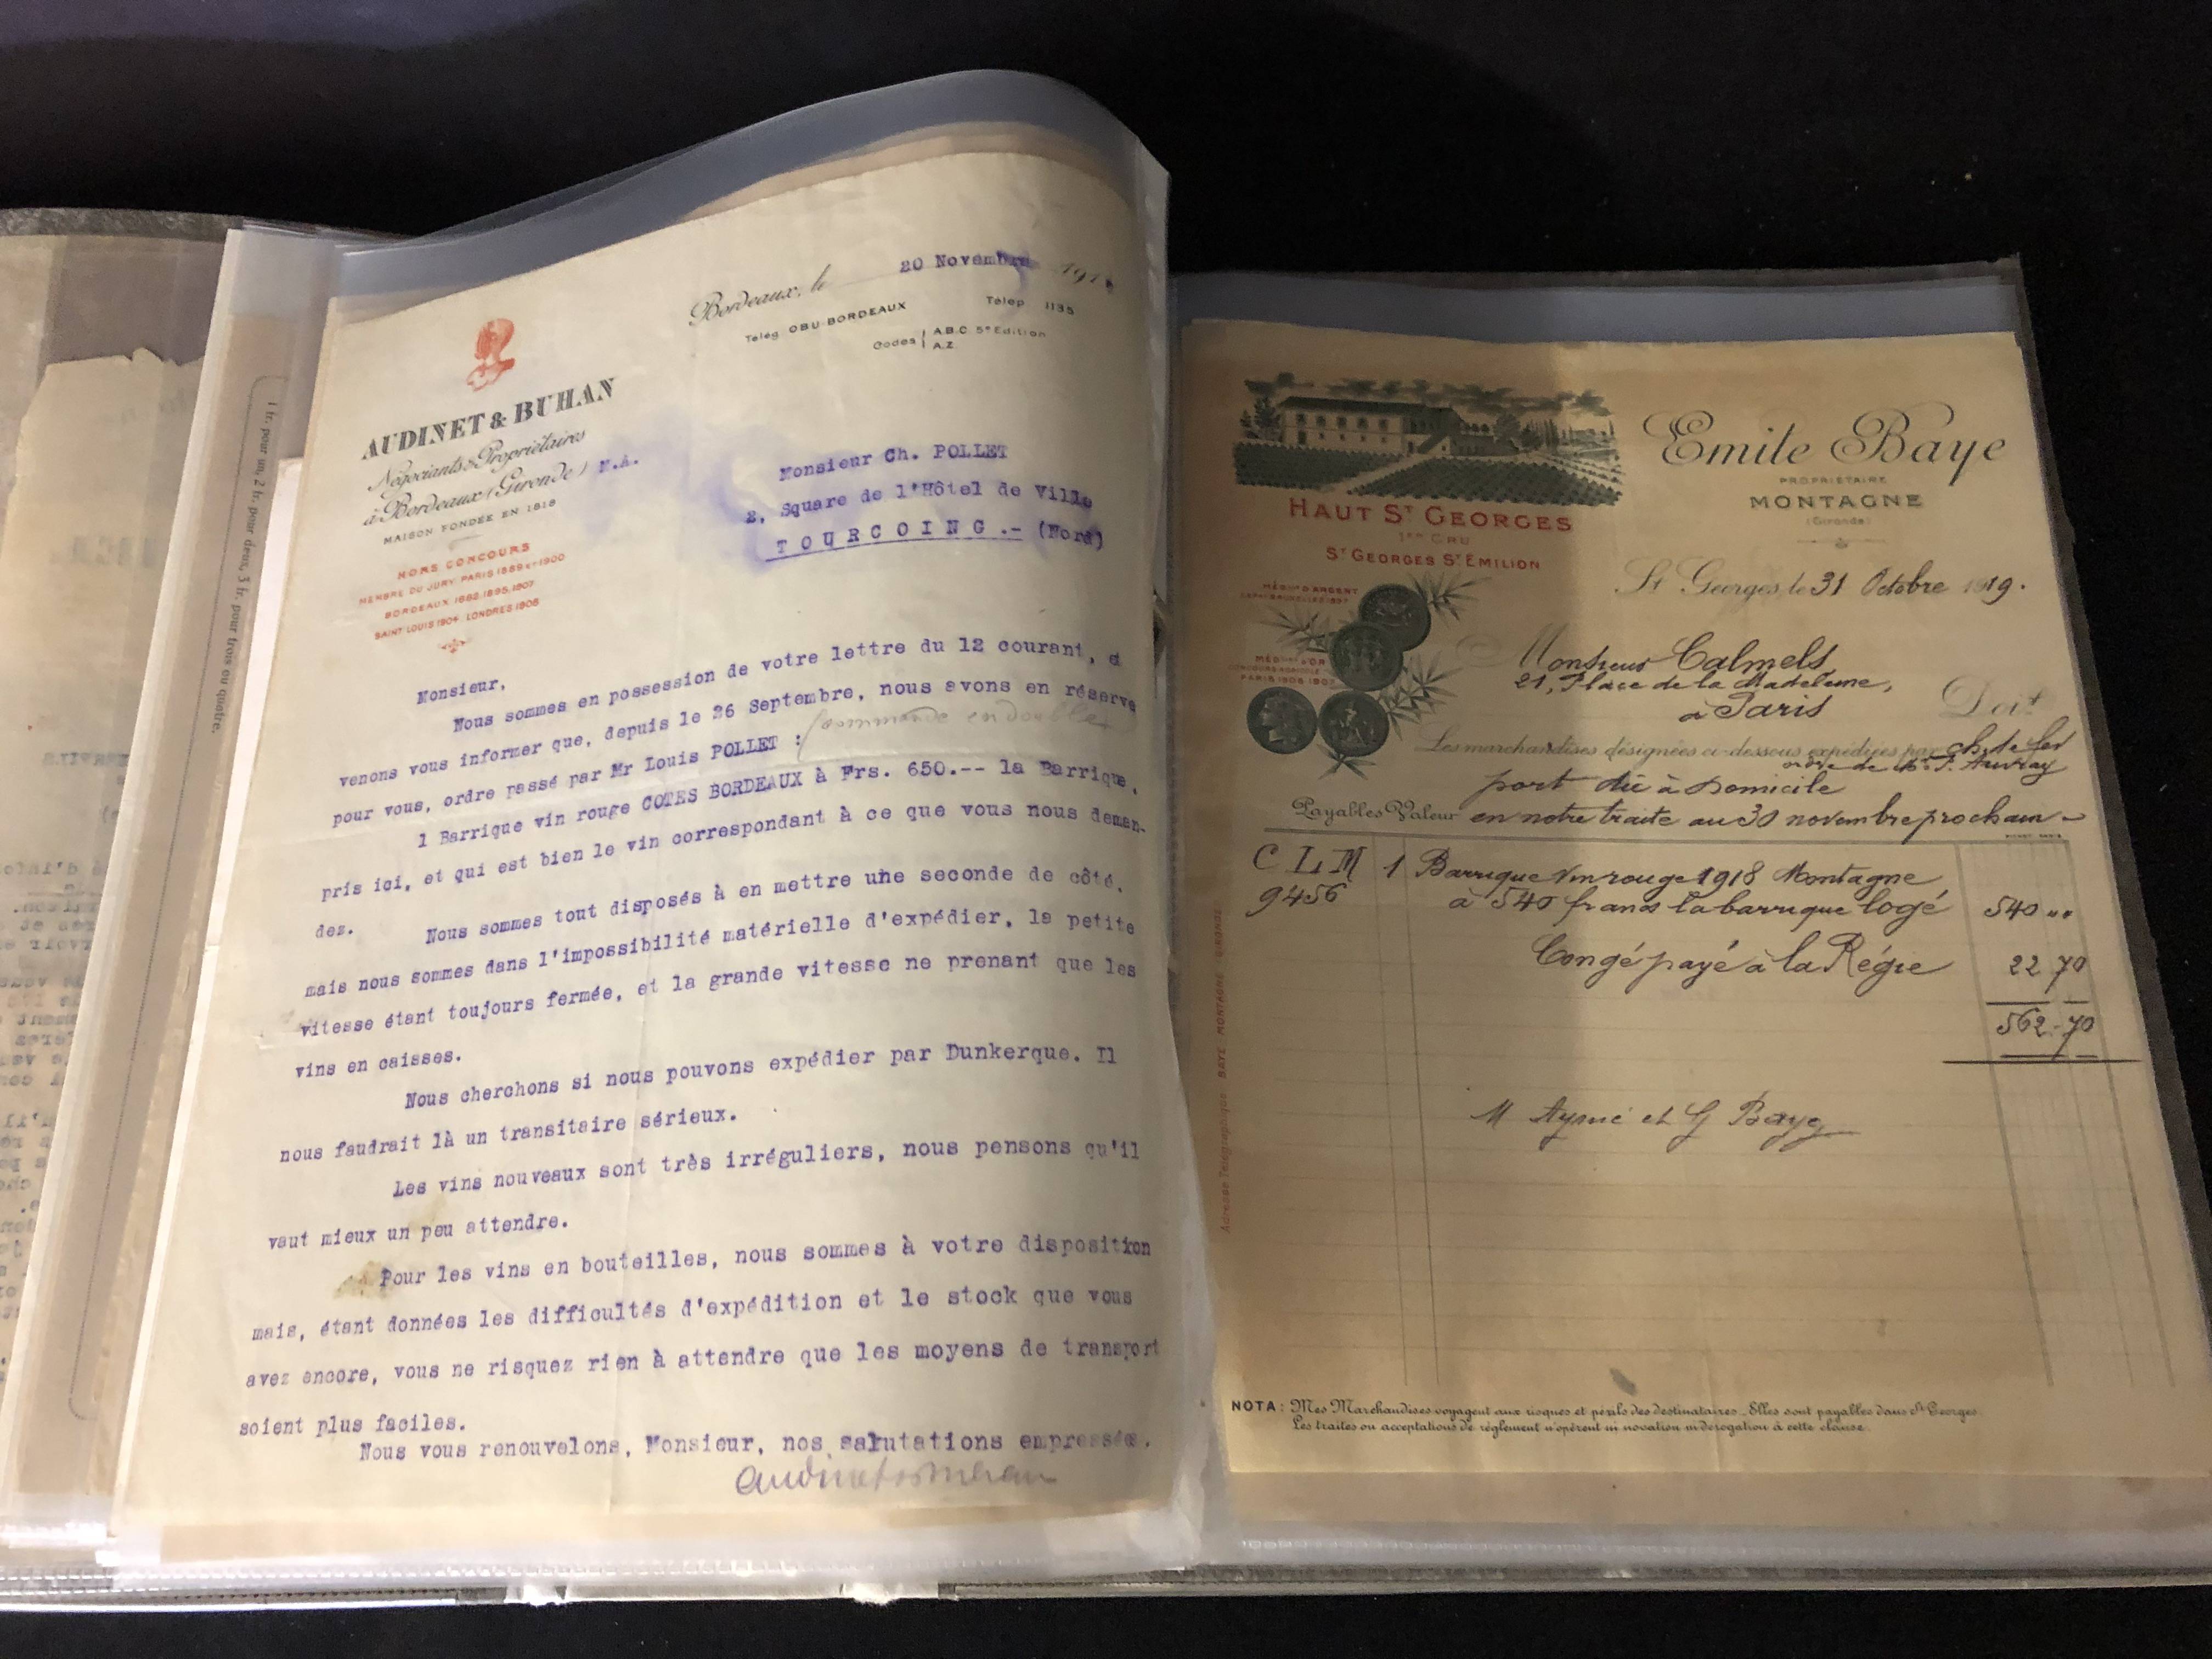 1 fr. pour un, 2 fr. pour deux, 3 fr. pour trois ou quatre.
Bordeaux, le 20 Novembre 191
Télég OBU-BORDEAUX
Télép 1135
Codes A.B.C. 5e Edition
A.Z.
AUDINET & BUHAN
Négociants & Propriétaires
à Bordeaux (Gironde)
MAISON FONDÉE EN 1818
N.A.
HORS CONCOURS
MEMBRE DU JURY PARIS 1889 et 1900
BORDEAUX 1882.1895.1907
SAINT LOUIS 1904 LONDRES 1908
Monsieur Ch. POLLET
2, Square de l'Hôtel de Ville
TOURCOING.- (Nord)
Monsieur,
Nous sommes en possession de votre lettre du 12 courant, et
venons vous informer que, depuis le 26 Septembre, nous avons en réserve
pour vous, ordre passé par Mr Louis POLLET : (commande en double
1 Barrique vin rouge COTES BORDEAUX à Frs. 650.-- la Barrique,
pris ici, et qui est bien le vin correspondant à ce que vous nous deman-
dez.
Nous sommes tout disposés à en mettre une seconde de côté,
mais nous sommes dans l'impossibilité matérielle d'expédier, la petite
vitesse étant toujours fermée, et la grande vitesse ne prenant que les
vins en caisses.
Nous cherchons si nous pouvons expédier par Dunkerque. Il
nous faudrait là un transitaire sérieux.
Les vins nouveaux sont très irréguliers, nous pensons qu'il
vaut mieux un peu attendre.
Pour les vins en bouteilles, nous sommes à votre disposition
mais, étant données les difficultés d'expédition et le stock que vous
avez encore, vous ne risquez rien à attendre que les moyens de transport
soient plus faciles.
Nous vous renouvelons, Monsieur, nos salutations empressées.
HAUT ST GEORGES
1er CRU
ST GEORGES ST EMILION
Emile Baye
PROPRIÉTAIRE
MONTAGNE
(Gironde)
St Georges, le 31 Octobre 1919.
Monsieur Calmels,
21, Place de la Madeleine,
à Paris
Doit
Les marchandises désignées ci-dessous expédiées par ch. de fer
port dû à Domicile
Payables Valeur en notre traite au 30 novembre prochain -
C L M 1 Barrique vin rouge 1918 Montagne
9456 à 540 francs la barrique logé 540 ""
Congé payé à la Régie 22 70
562.70
M Aymé et G Baye
Adresse Télégraphique BAYE MONTAGNE GIRONDE
NOTA: Mes Marchandises voyagent aux risques et périls des destinataires. Elles sont payables dans St Georges.
Les traites ou acceptations de règlement n'opèrent ni novation ni dérogation à cette clause.